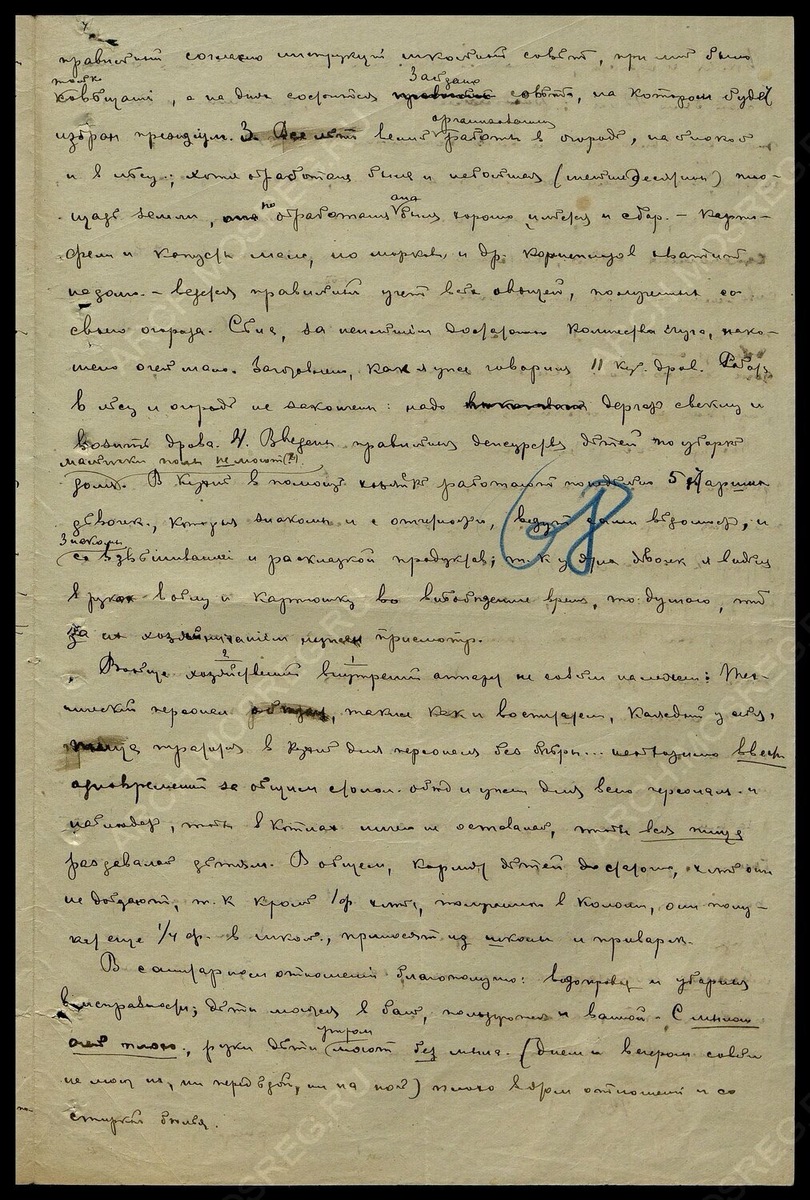 правильный согласно инструкций школьный совет, при мне было
только Заседание
совещание, а на днях состоится совет, на котором будет
избран президиум. 3. Все лето велись организованные работы в огороде,
и в лесу; хотя обработана была и небольшая пло-
щадь земли, но обработана она была хорошо и сбор. - Карто-
феля и капусты мало, но моркови и др. корнеплодов хватит
надолго. - ведется правильный учет всех овощей, полученных со
своего огорода. Сена, за неимением достаточного количества луга, нако-
шено очень мало. Заготовлено, как я уже говорила 11 куб. дров. Работы
в лесу и огороде не закончены: надо дергать свеклу и
возить дрова. 4. Введены правильные дежурства детей по уборке
мальчики полы не моют (?!)
дома. В кухне в помощь работают поденно 5
девочек, которые знакомы и с отчетностью, ведут сами ведомость, и
знакомы
со взвешиванием и раскладкой продуктов; т.к. у двух девочек я видела
в руках и картошку во время, то думаю, что
за их хозяйничанием нужен присмотр.
Вообще хозяйственный 2 внутренний 1 аппарат не совсем налажен: Тех-
нический персонал, также как и воспитатели, каждый у себя,
пища тратится в кухне для персонала без меры... необходимо ввести
одновременный за общим столом обед и ужин для всего персонала и
наблюдать, чтобы в котлах ничего не оставалось, чтобы вся пища
раздавалась детям. В общем, кормят детей достаточно, хлеб они
не доедают, т.к. кроме 1 ф. хлеба, получаемого в колонии, они полу-
чают еще 1/4 ф. в школе, приносят из школы и приварок.
В санитарном отношении благополучно: водопровод и уборные
в исправности; дети моются в бане, пользуются и ванной. - С мылом
очень плохо, руки дети утром моют без мыла. (Днем и вечером совсем
не моют их, ни перед едой, ни на ночь) плохо в этом отношении и со
стиркой белья.